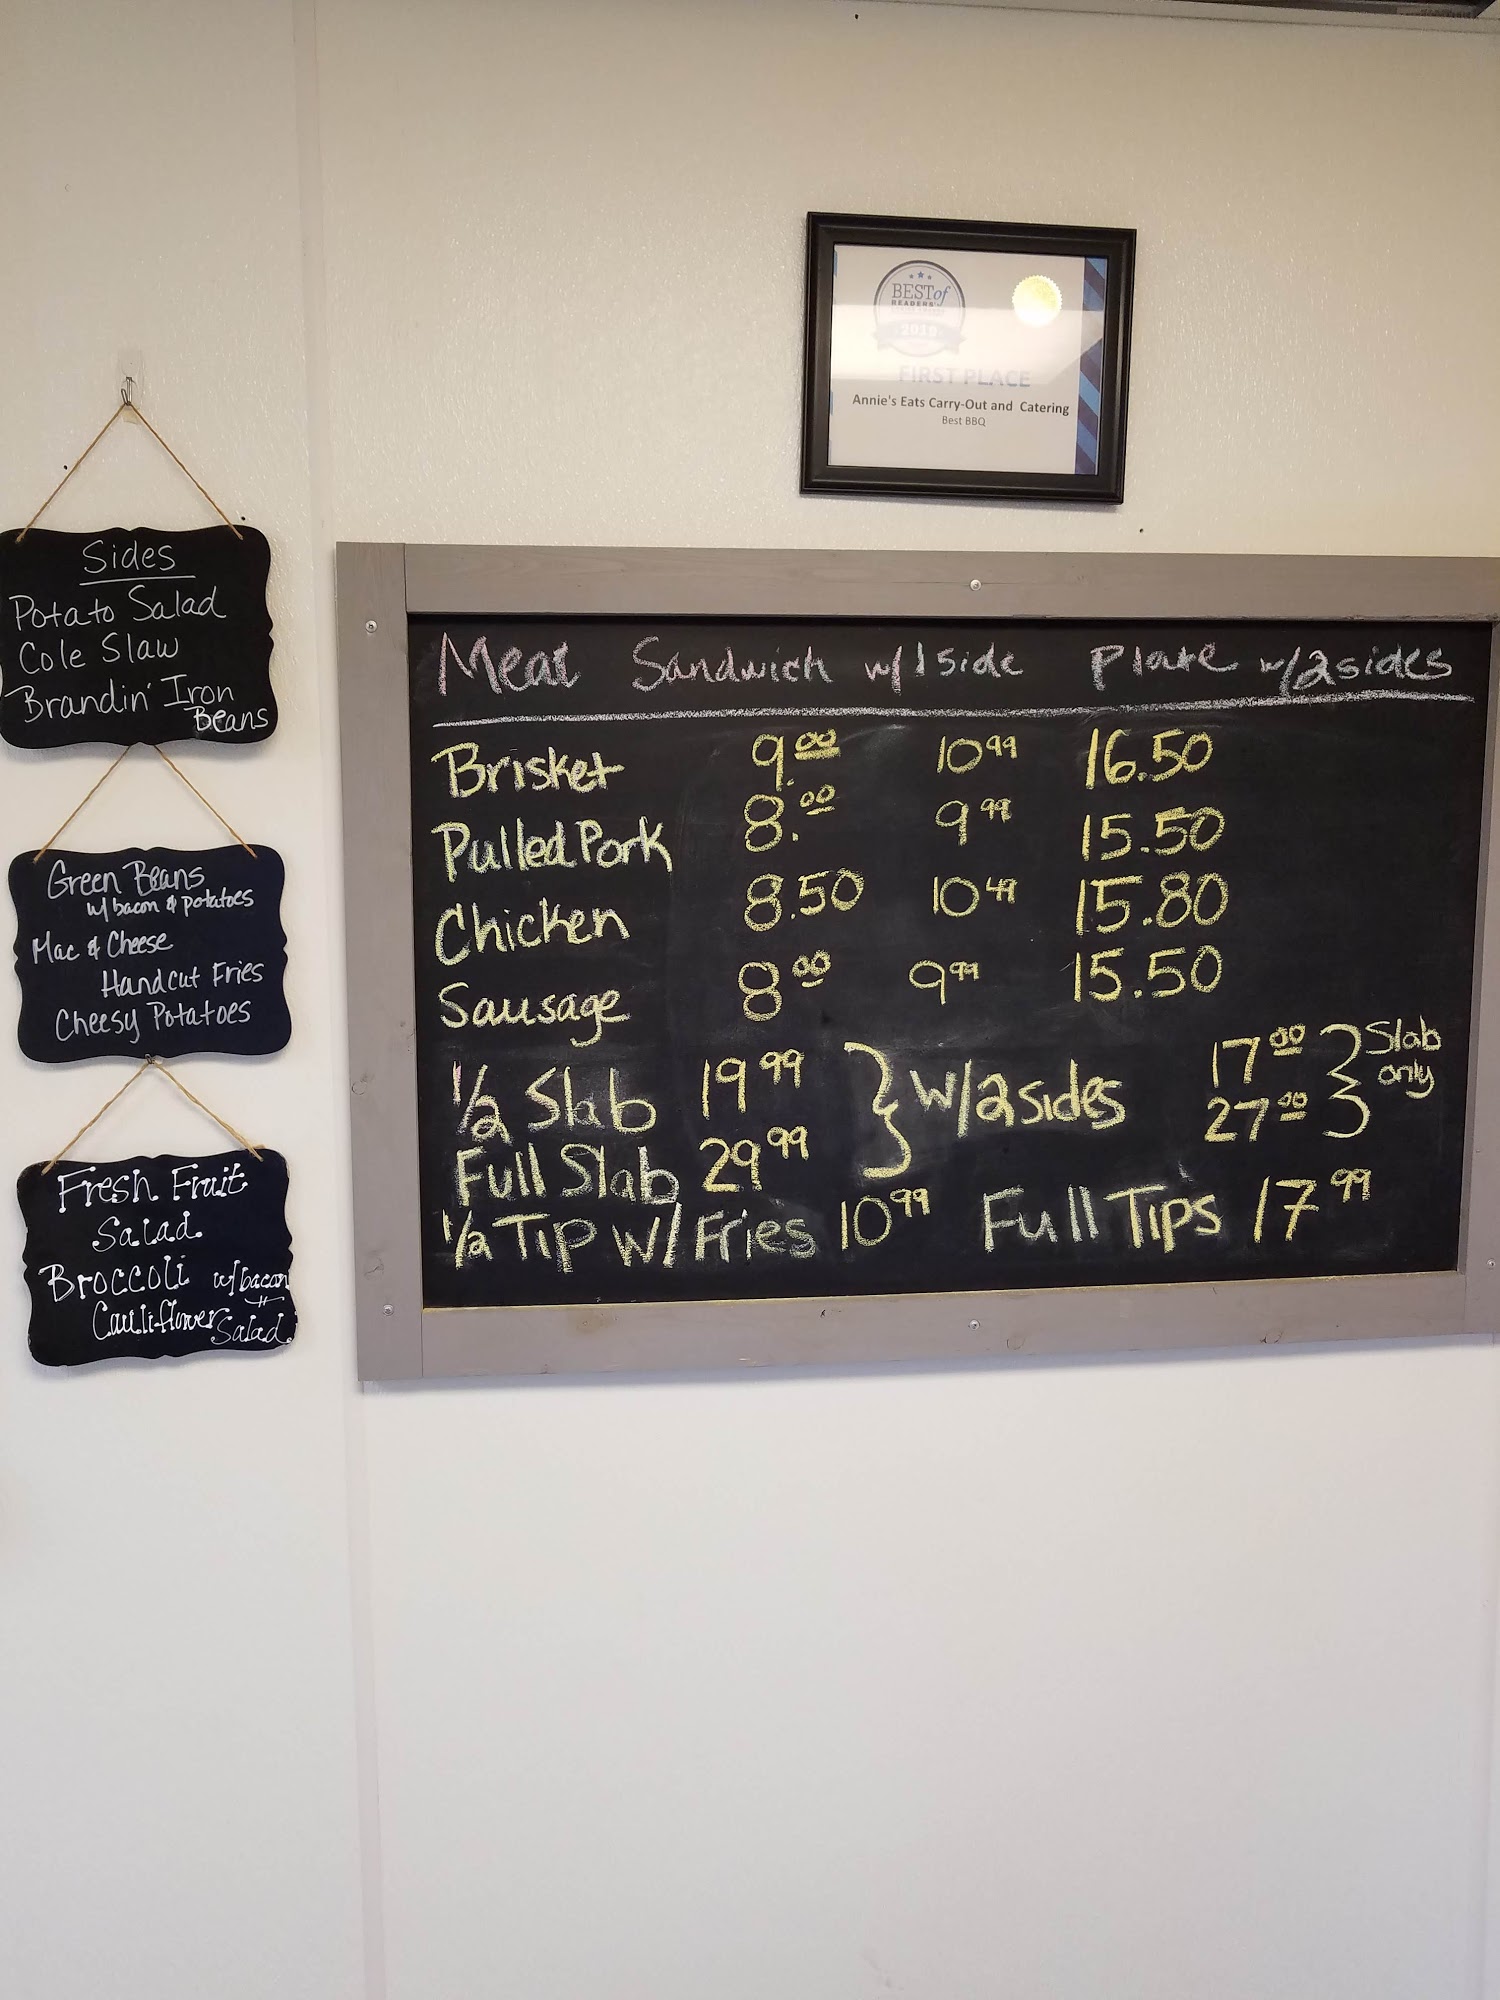 BEST of
READERS'
2019
FIRST PLACE
Annie's Eats Carry-Out and Catering
Best BBQ
Sides
Potato Salad
Cole Slaw
Brandin' Iron
Beans
Green Beans
w/ bacon & potatoes
Mac & Cheese
Handcut Fries
Cheesy Potatoes
Fresh Fruit
Salad
Broccoli w/bacon
Cauliflower Salad
Meat Sandwich w/1 side Plate w/2 sides
Brisket 9.00 10 99 16.50
Pulled Pork 8.00 9 99 15.50
Chicken 8.50 10 49 15.80
Sausage 8 00 9 99 15.50
1/2 Slab 19 99 } w/2 sides 17 00 } Slab only
Full Slab 29 99 27 00
1/2 Tip w/ Fries 10 99 Full Tips 17 99